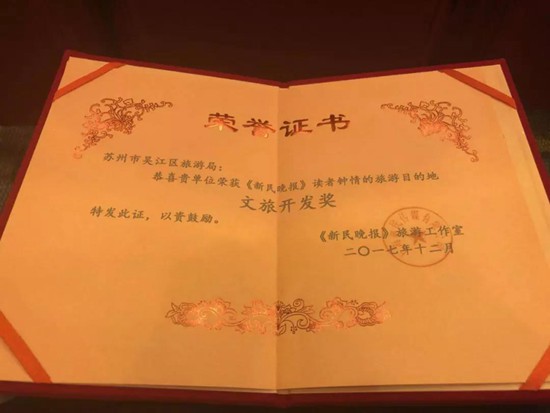 荣誉证书
苏州市吴江区旅游局：
恭喜贵单位荣获《新民晚报》读者钟情的旅游目的地
文旅开发奖
特发此证，以资鼓励。
《新民晚报》旅游工作室
二〇一七年十二月